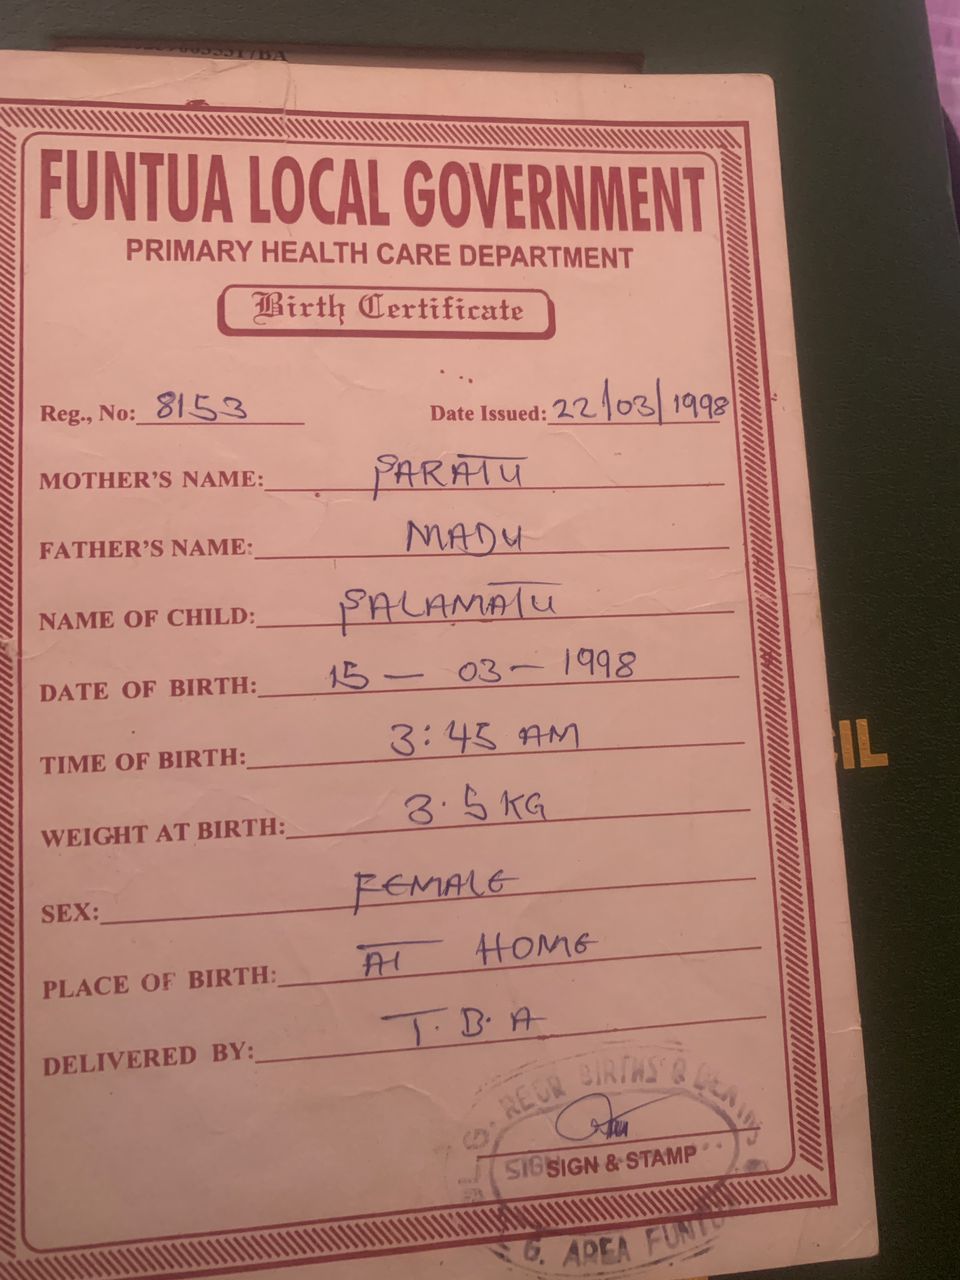 FUNTUA LOCAL GOVERNMENT
PRIMARY HEALTH CARE DEPARTMENT
Birth Certificate
Reg., No: 8153 Date Issued: 22/03/1998
MOTHER'S NAME: SARATU
FATHER'S NAME: MADU
NAME OF CHILD: SALAMATU
DATE OF BIRTH: 15 — 03 — 1998
TIME OF BIRTH: 3:45 AM
WEIGHT AT BIRTH: 3.5 KG
SEX: FEMALE
PLACE OF BIRTH: AT HOME
DELIVERED BY: T.B.A
BIRTHS &
SIGN
SIGN & STAMP
AREA
IL